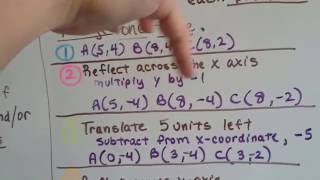 each
one
① A(5,4) B(8,4) C(8,2)
② Reflect across the x axis
multiply y by -1
A(5,-4) B(8,-4) C(8,-2)
Translate 5 units left
subtract from x-coordinate, -5
A(0,-4) B(3,-4) C(3,-2)
f
nd/or
s